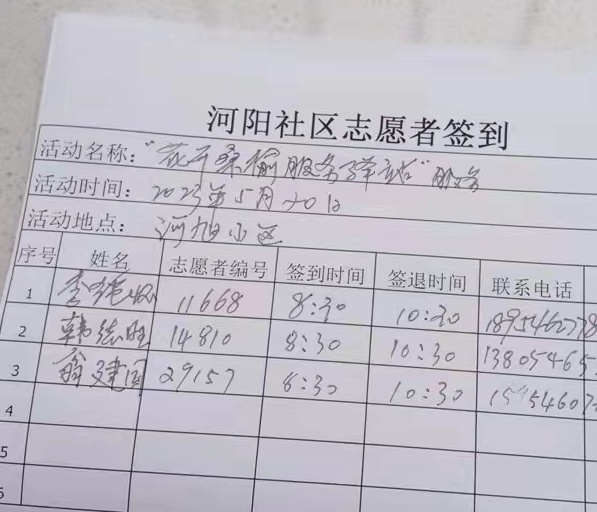 河阳社区志愿者签到
活动名称：“花开桑榆服务驿站”服务
活动时间：2023年5月20日
活动地点：河旭小区
序号 姓名 志愿者编号 签到时间 签退时间 联系电话
1 11668 8:30 10:30
2 韩德胜 14810 8:30 10:30 13805465
3 翁建国 29157 8:30 10:30
4
5
6